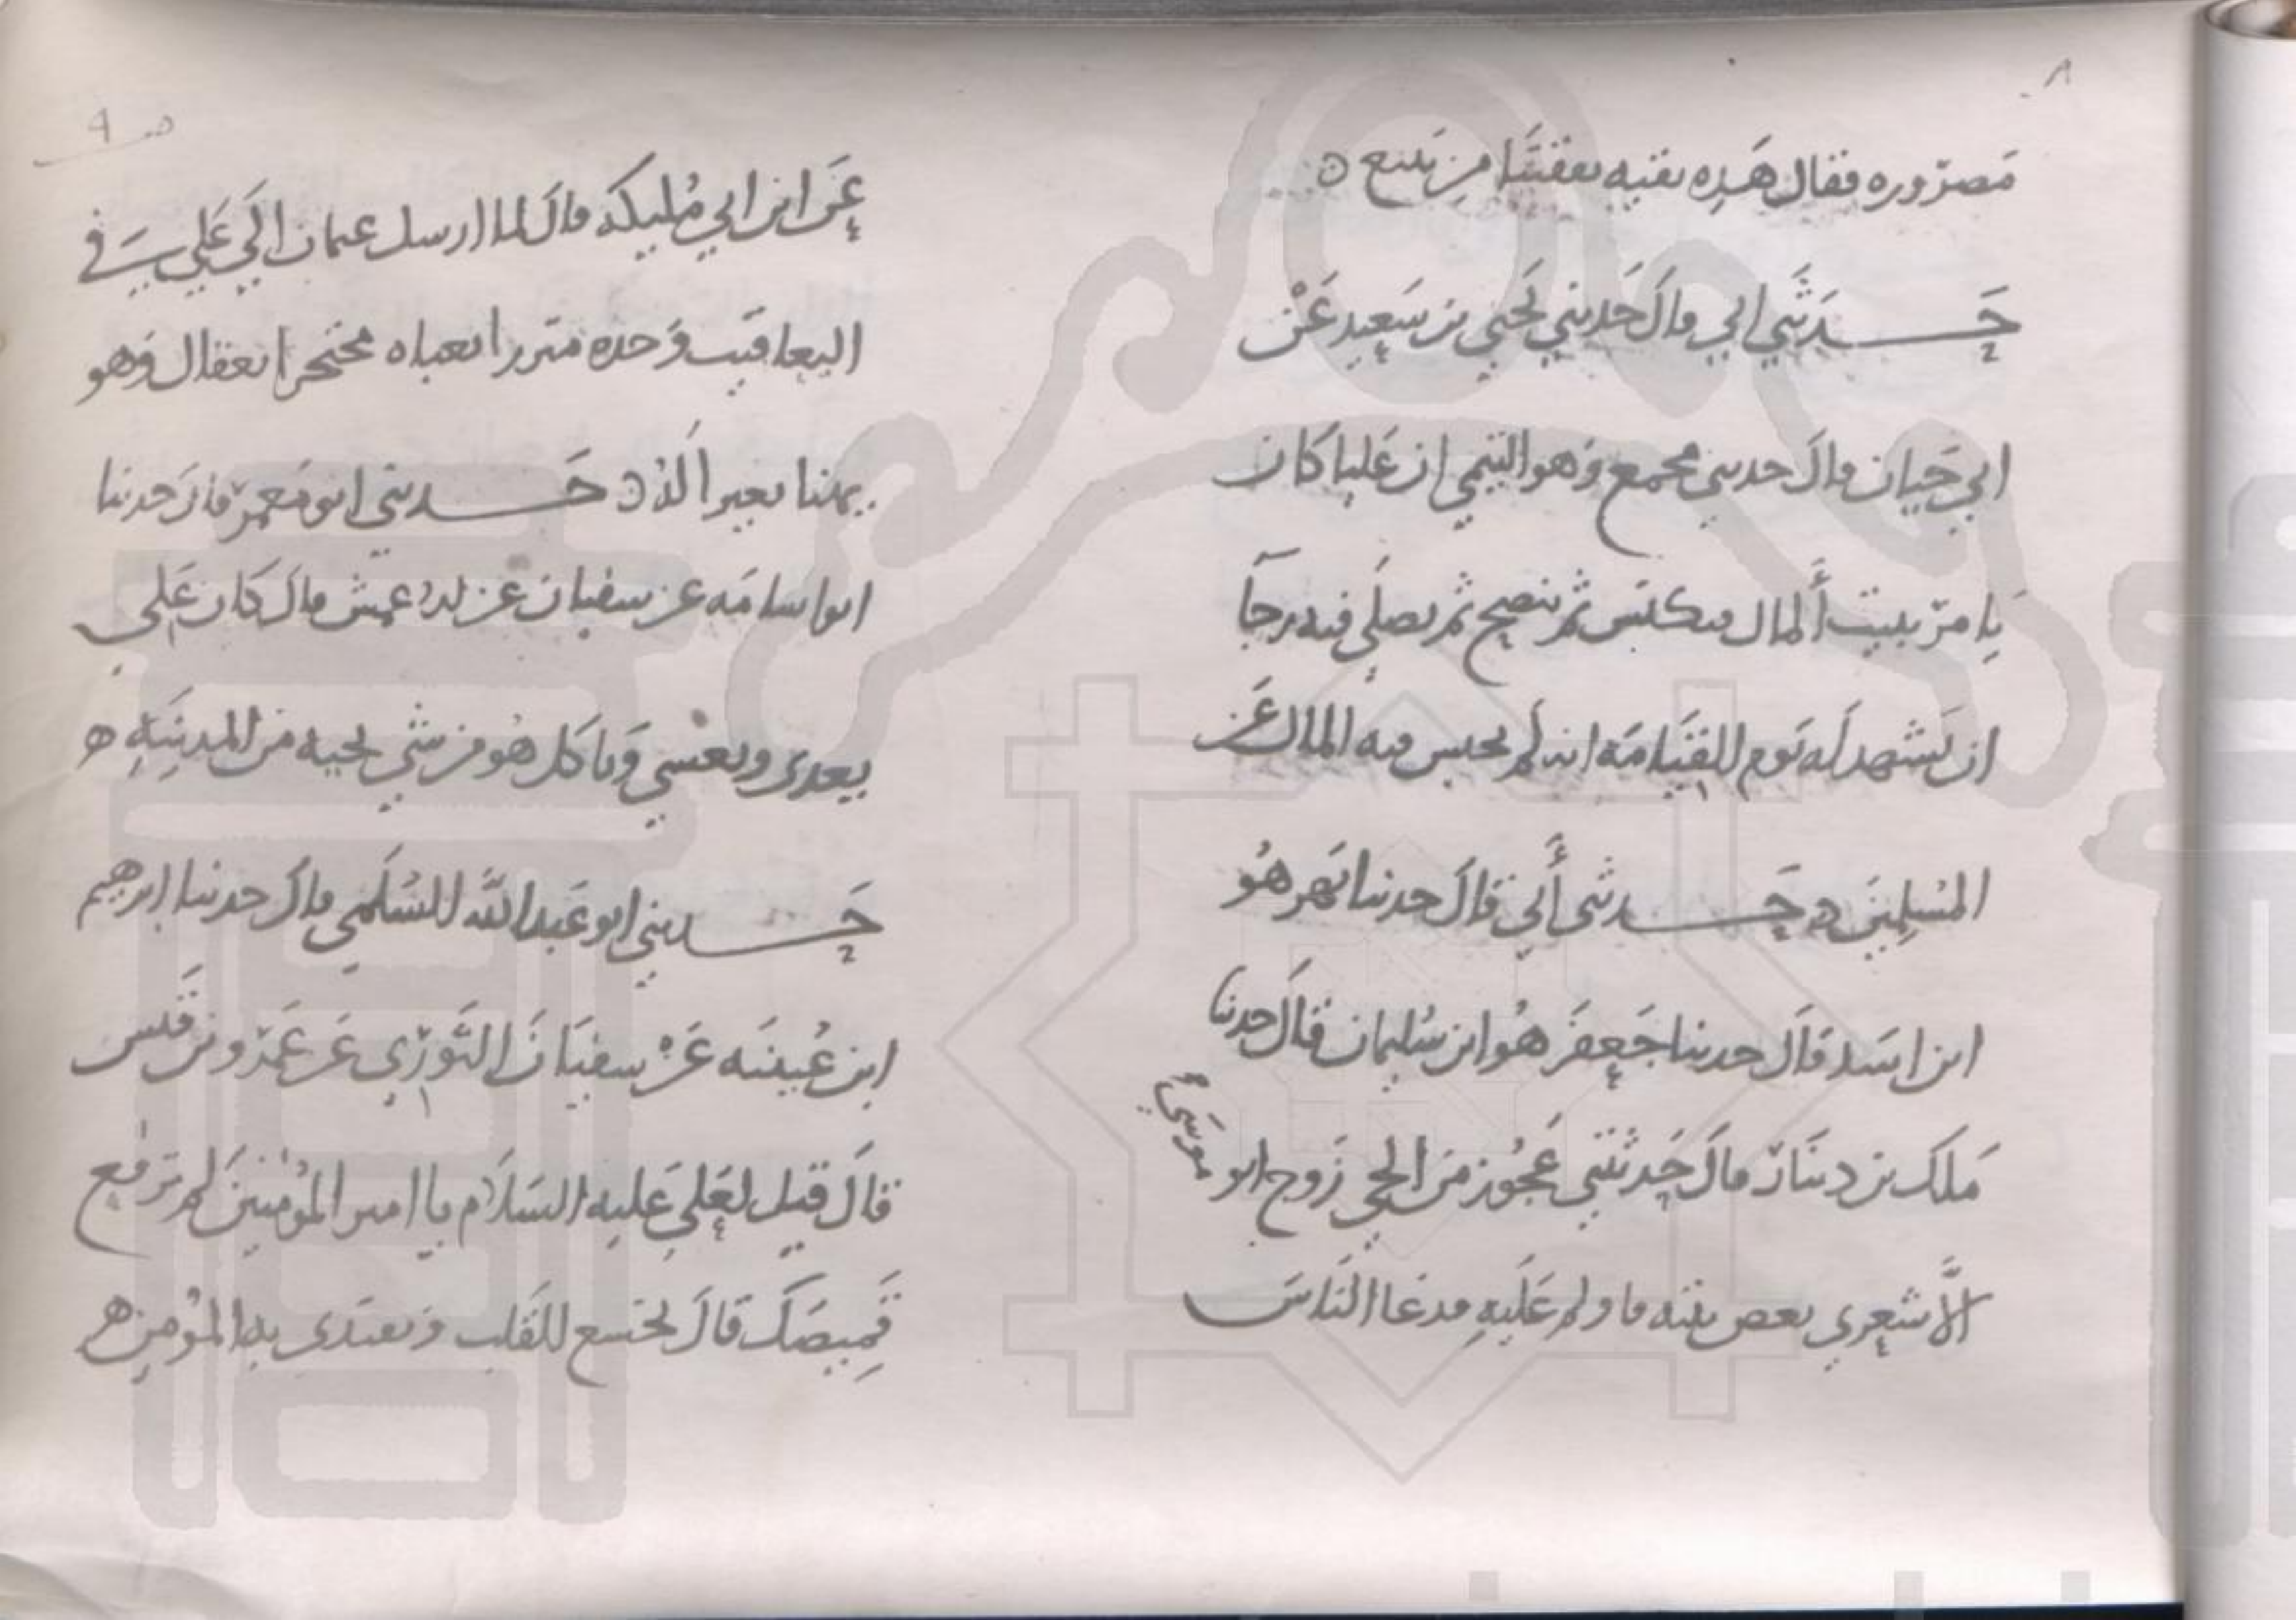 ٨
مصروره فقال هذه بقيه نفقتنا من ينبع
حدثني ابي قال حدثني يحيى بن سعيد عن
ابي حيان قال حدثني مجمع وهو التيمي ان عليا كان
يامر ببيت المال فيكنس ثم ينضح ثم يصلي فيه رجآ
ان يشهد له يوم القيامه انه لم يحبس فيه المال عن
المسلمين حدثني أبي قال حدثنا بهز هو
ابن اسد قال حدثنا جعفر هو ابن سليمان قال حدثنا
ملك بن دينار قال حدثتني عجوز من الحي زوج ابو موسى
الأشعري بعض بنيه فاولم عليه فدعا الناس
ص ٩
عن ابن ابي مليكه قال لما ارسل عثمان الى علي في
اليعاقيب وجده متزرا بعباه محتجرا بعقال وهو
يهنا بعيرا له حدثني ابو معمر قال حدثنا
ابو اسامه عن سفيان عن الاعمش قال كان علي
يغدي ويعشي وياكل هو من شي يجيه من المدينه
حدثني ابو عبد الله السلمي قال حدثنا ابرهيم
ابن عيينه عن سفيان الثوري عن عمرو بن قيس
قال قيل لعلي عليه السلام يا امير المؤمنين لم ترقع
قميصك قال يخشع القلب ويقتدي به المؤمن